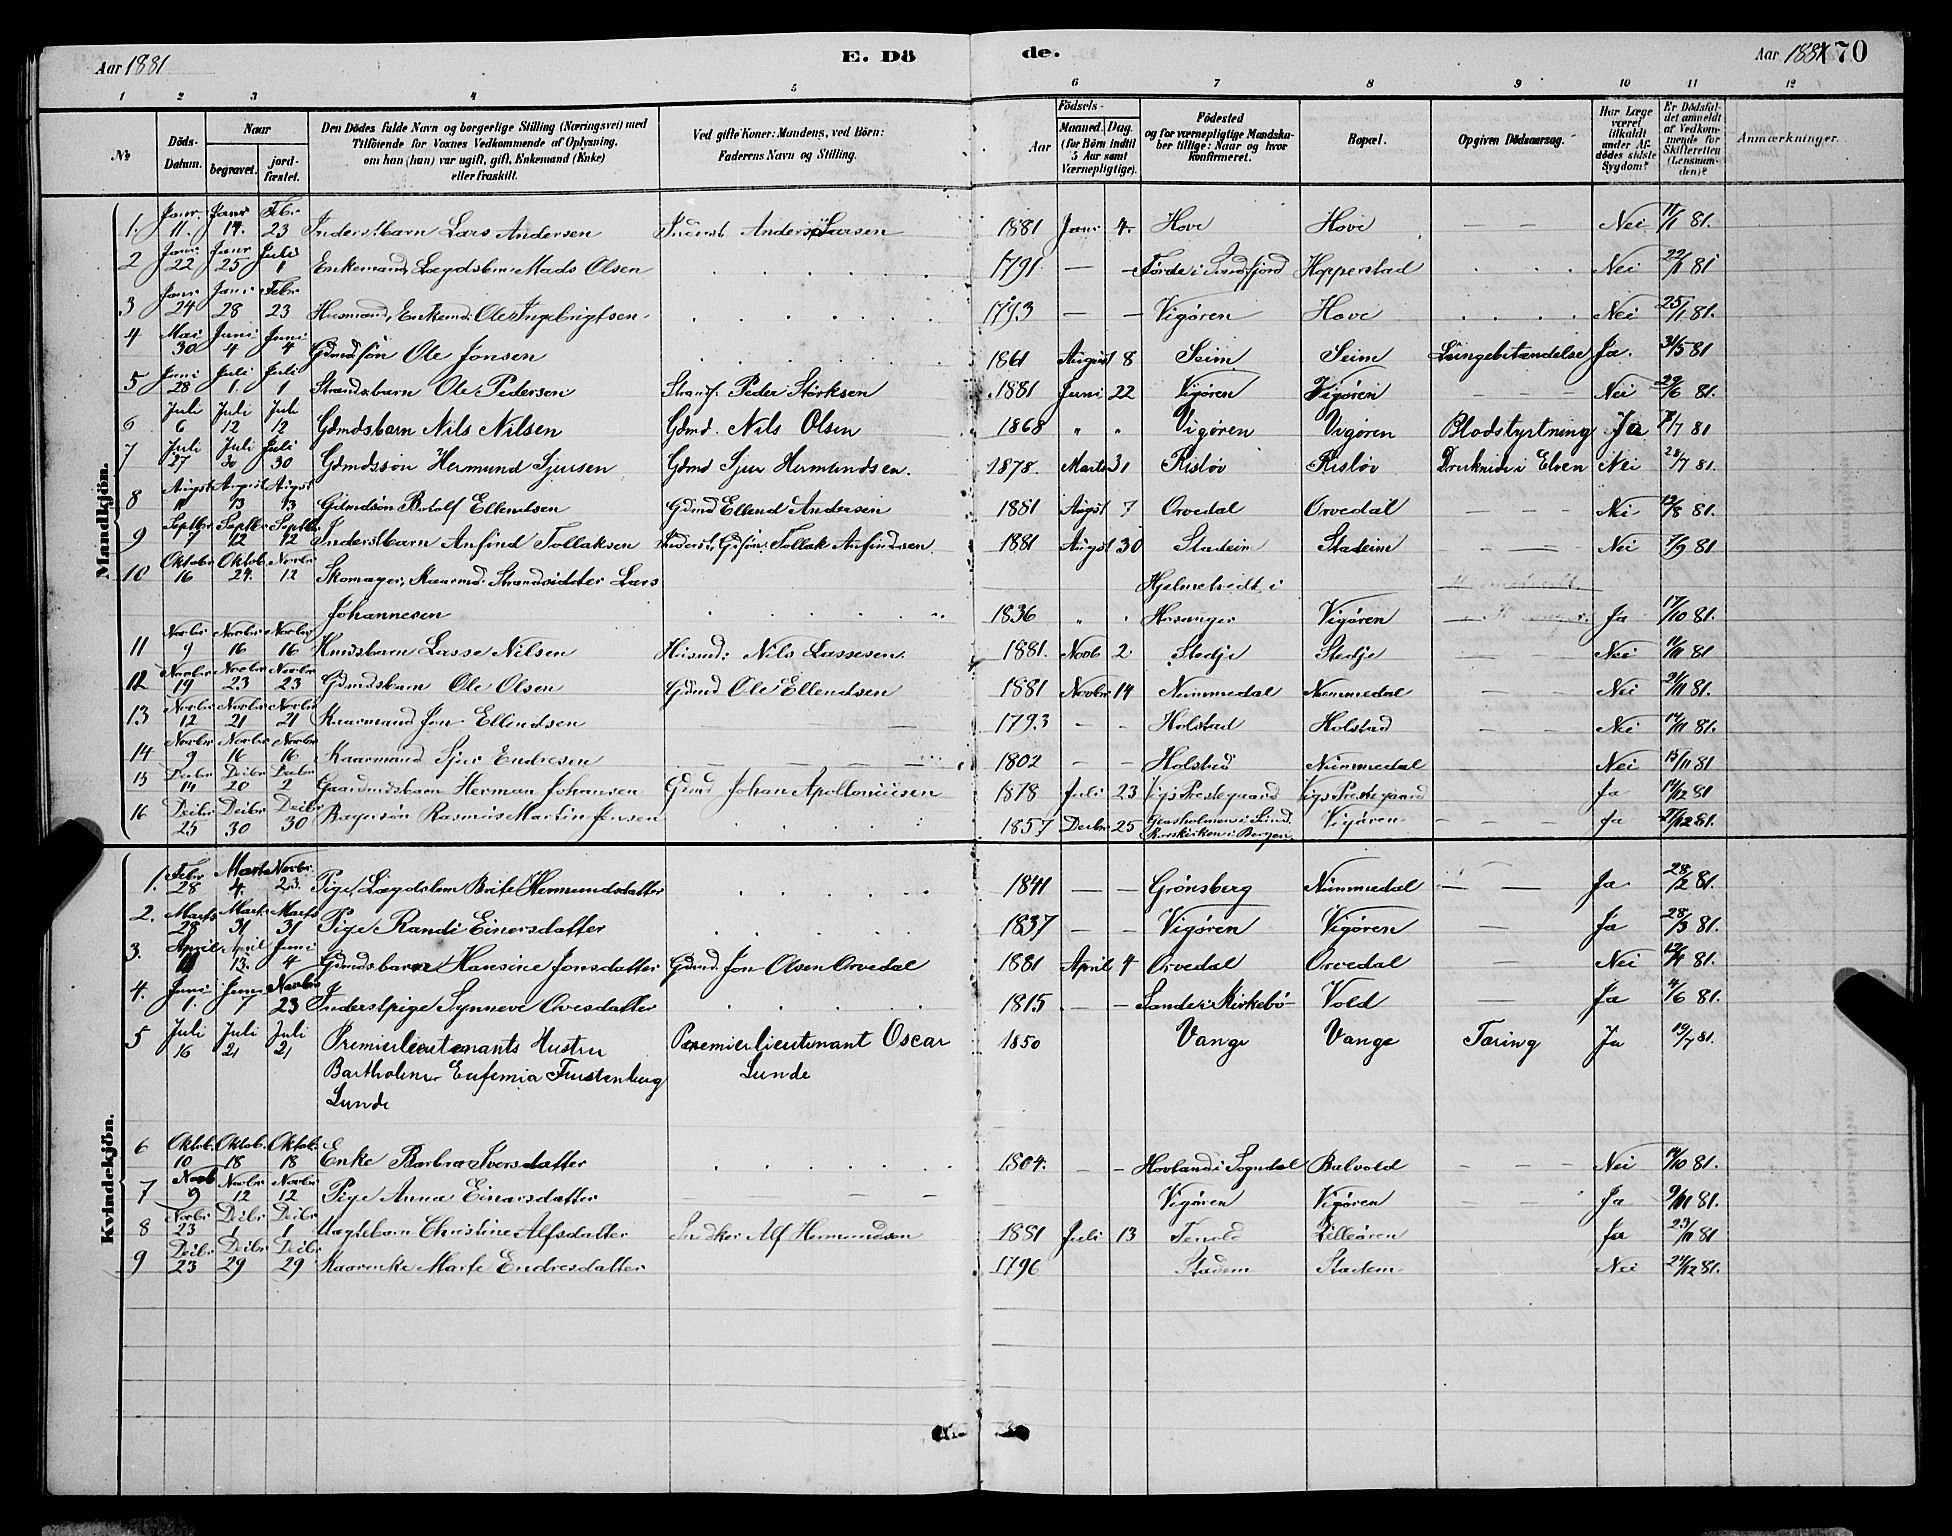 Aar 1881
E. Dö
de.
Aar 1881 70
1 2 3 4 5 6 7 8 9 10 11 12
№ Döds-Datum. Naar begravet. jord-fæstet. Den Dödes fulde Navn og borgerlige Stilling (Næringsvei) med Tilföiende for Voxnes Vedkommende af Oplysning, om han (hun) var ugift, gift, Enkemand (Enke) eller fraskilt. Ved gifte Koner: Mandens, ved Börn: Faderens Navn og Stilling. Aar Födsels- Maaned. Dag. (for Börn indtil 5 Aar samt Værnepligtige). Födested og for værnepligtige Mandskaber tillige: Naar og hvor konfirmeret. Bopæl. Opgiven Dödsaarsag. Har Læge været tilkaldt under Afdödes sidste Sygdom? Er Dödsfaldet anmeldt af Vedkommende for Skifteretten (Lensmanden)? Anmærkninger.
Mandkjön.
1. Janr. 11. Janr 14. Febr 23 Inderstbarn Lars Andersen Inderst Anders Larsen 1881 Janr 4 Hove Hove — — Nei 11/1 81.
2 Janr 22 Janr 25 Juli 1 Enkemand, Lægdslem Mads Olsen 1791 — — Förde i Söndfjord Hopperstad Nei 22/1 81
3 Janr 24 Janr 28 Febr 23 Husmand, Enkemd. Ole Ingebrigtsen 1793 — — Vigøren Hove Nei 25/1 81.
4 Mai 30 Juni 4 Juni 4 Gdmdsøn Ole Jonsen 1861 August 8 Seim Seim Lungebetændelse Ja. 31/5 81
5 Juni 28 Juli 1. Juli 1 Strandsbarn Ole Pedersen Strands. Peder Størksen 1881 Juni 22 Vigøren Vigøren — — Nei 29/6 81.
6 Juli 6 Juli 12 Juli 12 Gdmdsbarn Nils Nilsen Gdmd. Nils Olsen 1868 " " Vigøren Vigøren Blodstyrtning Ja /7 81
7 Juli 27 Juli 30 Juli 30 Gdmdssøn Hermund Sjursen Gdmd Sjur Hermundsen. 1878. Marts 31 Risløv Risløv Druknede i Elven Nei 28/7 81.
8 Augst 11 August 13 Augst 13 Gdmdsøn Botolf Ellendsen Gdmd Ellend Andersen 1881 Augst 7 Orvedal Orvedal — — Nei 12/8 81.
9 Septbr 7 Septbr 12 Septbr 12 Inderstbarn Anfind Tollaksen Inderst, Gdsøn. Tollak Anfindsen 1881 Augst 30 Stadeim Stadeim — — Nei 7/9 81
10 Oktobr 16 Oktob. 24. Novbr 12 Skomager, Kaarmd. Strandsidder Lars Hjelmetvedt i
Johannesen 1836 " " Hosanger Vigøren Ja 17/10 81.
11 Novbr 9 Novbr 16 Novbr 16 Hmdsbarn Lasse Nilsen Husmd: Nils Lassesen. 1881. Novb 2 Stedje Stedje — — Nei 11/11 81
12 Novbr 19 Novbr 23 Novbr 23 Gdmdsbarn Ole Olsen Gdmd Ole Ellendsen 1881 Novbr 14 Nummedal Nummedal — — Nei 21/11 81.
13 Novbr 12 Novbr 21 Novbr 21 Kaarmand Jon Ellendsen — — 1793 — — Holstad Holstad — — Nei 14/11 81.
14 Novbr 9 Novbr 16 Novbr 16 Kaarmand Sjur Endresen — — 1802 — — Holstad Nummedal — — Nei 15/11 81
15 Decbr 14 Deibr 20 Decbr 2 Gaardmdsbarn Herman Johansen Gdmd Johan Apolloniesen 1878 Juli 23 Vigs Prestegaard Vigs Prestegaard Ja 14/12 81
16 Deibr 25 Deibr 30 Deibr 30 Bagersøn Rasmus Martin Jensen 1857 Decbr 25 Korskirken i Bergen Vigøren — — Ja 27/12 81.
Kvindekjön.
1. Febr 28 Marts 4. Novbr. 23. Pige, Lægdslem Brite Hermundsdatter 1841 — — Grønsberg Nummedal — — Ja 28/2 81.
2. Marts 28 Mart. 31 Marts 31 Pige Randi Einersdatter 1837 — — Vigøren Vigøren — Ja 28/3 81.
3. April April 13. Juni 4 Gdmdsbarn Hansine Jonsdatter Gdmd. Jon Olsen Orvedal 1881 April 4 Orvedal Orvedal — Nei 12/4 81.
4. Juni 1. Juni 7 Novbr 23 Inderstpige Synneve Ovesdatter 1815 — — Sande i Kirkebö Vold — Ja 4/6 81.
5 Juli 16 Juli 21 Juli 21 Premierlieutenants Hustru Premierlieutenant Oscar 1850 Vange Vange Tæring Ja 19/7 81.
Bartholine Eufemia Furstenberg Lunde
Lunde
6 Oktob. 10 Oktob. 18 Oktob. 18 Enke Barbra Iversdatter 1804. — — Hovland i Sogndal Balvold — — Nei 14/10 81.
7 Novb 9 Novbr 12 Novbr 12 Pige Anna Einarsdatter — — Vigøren Vigøren — — Ja 9/11 81.
8 Novbr 23 Deibr 1 Deibr 1 Uægtebarn Christine Alfsdatter Snedker Alf Hermundsen 1881 Juli 13 Tenold Lilleøren Ja 23/11 81
9 Deibr 23 Deibr 29 Deibr 29 Kaarenke Marte Endresdatter 1796 Stadem Stadem Nei 24/12 81.